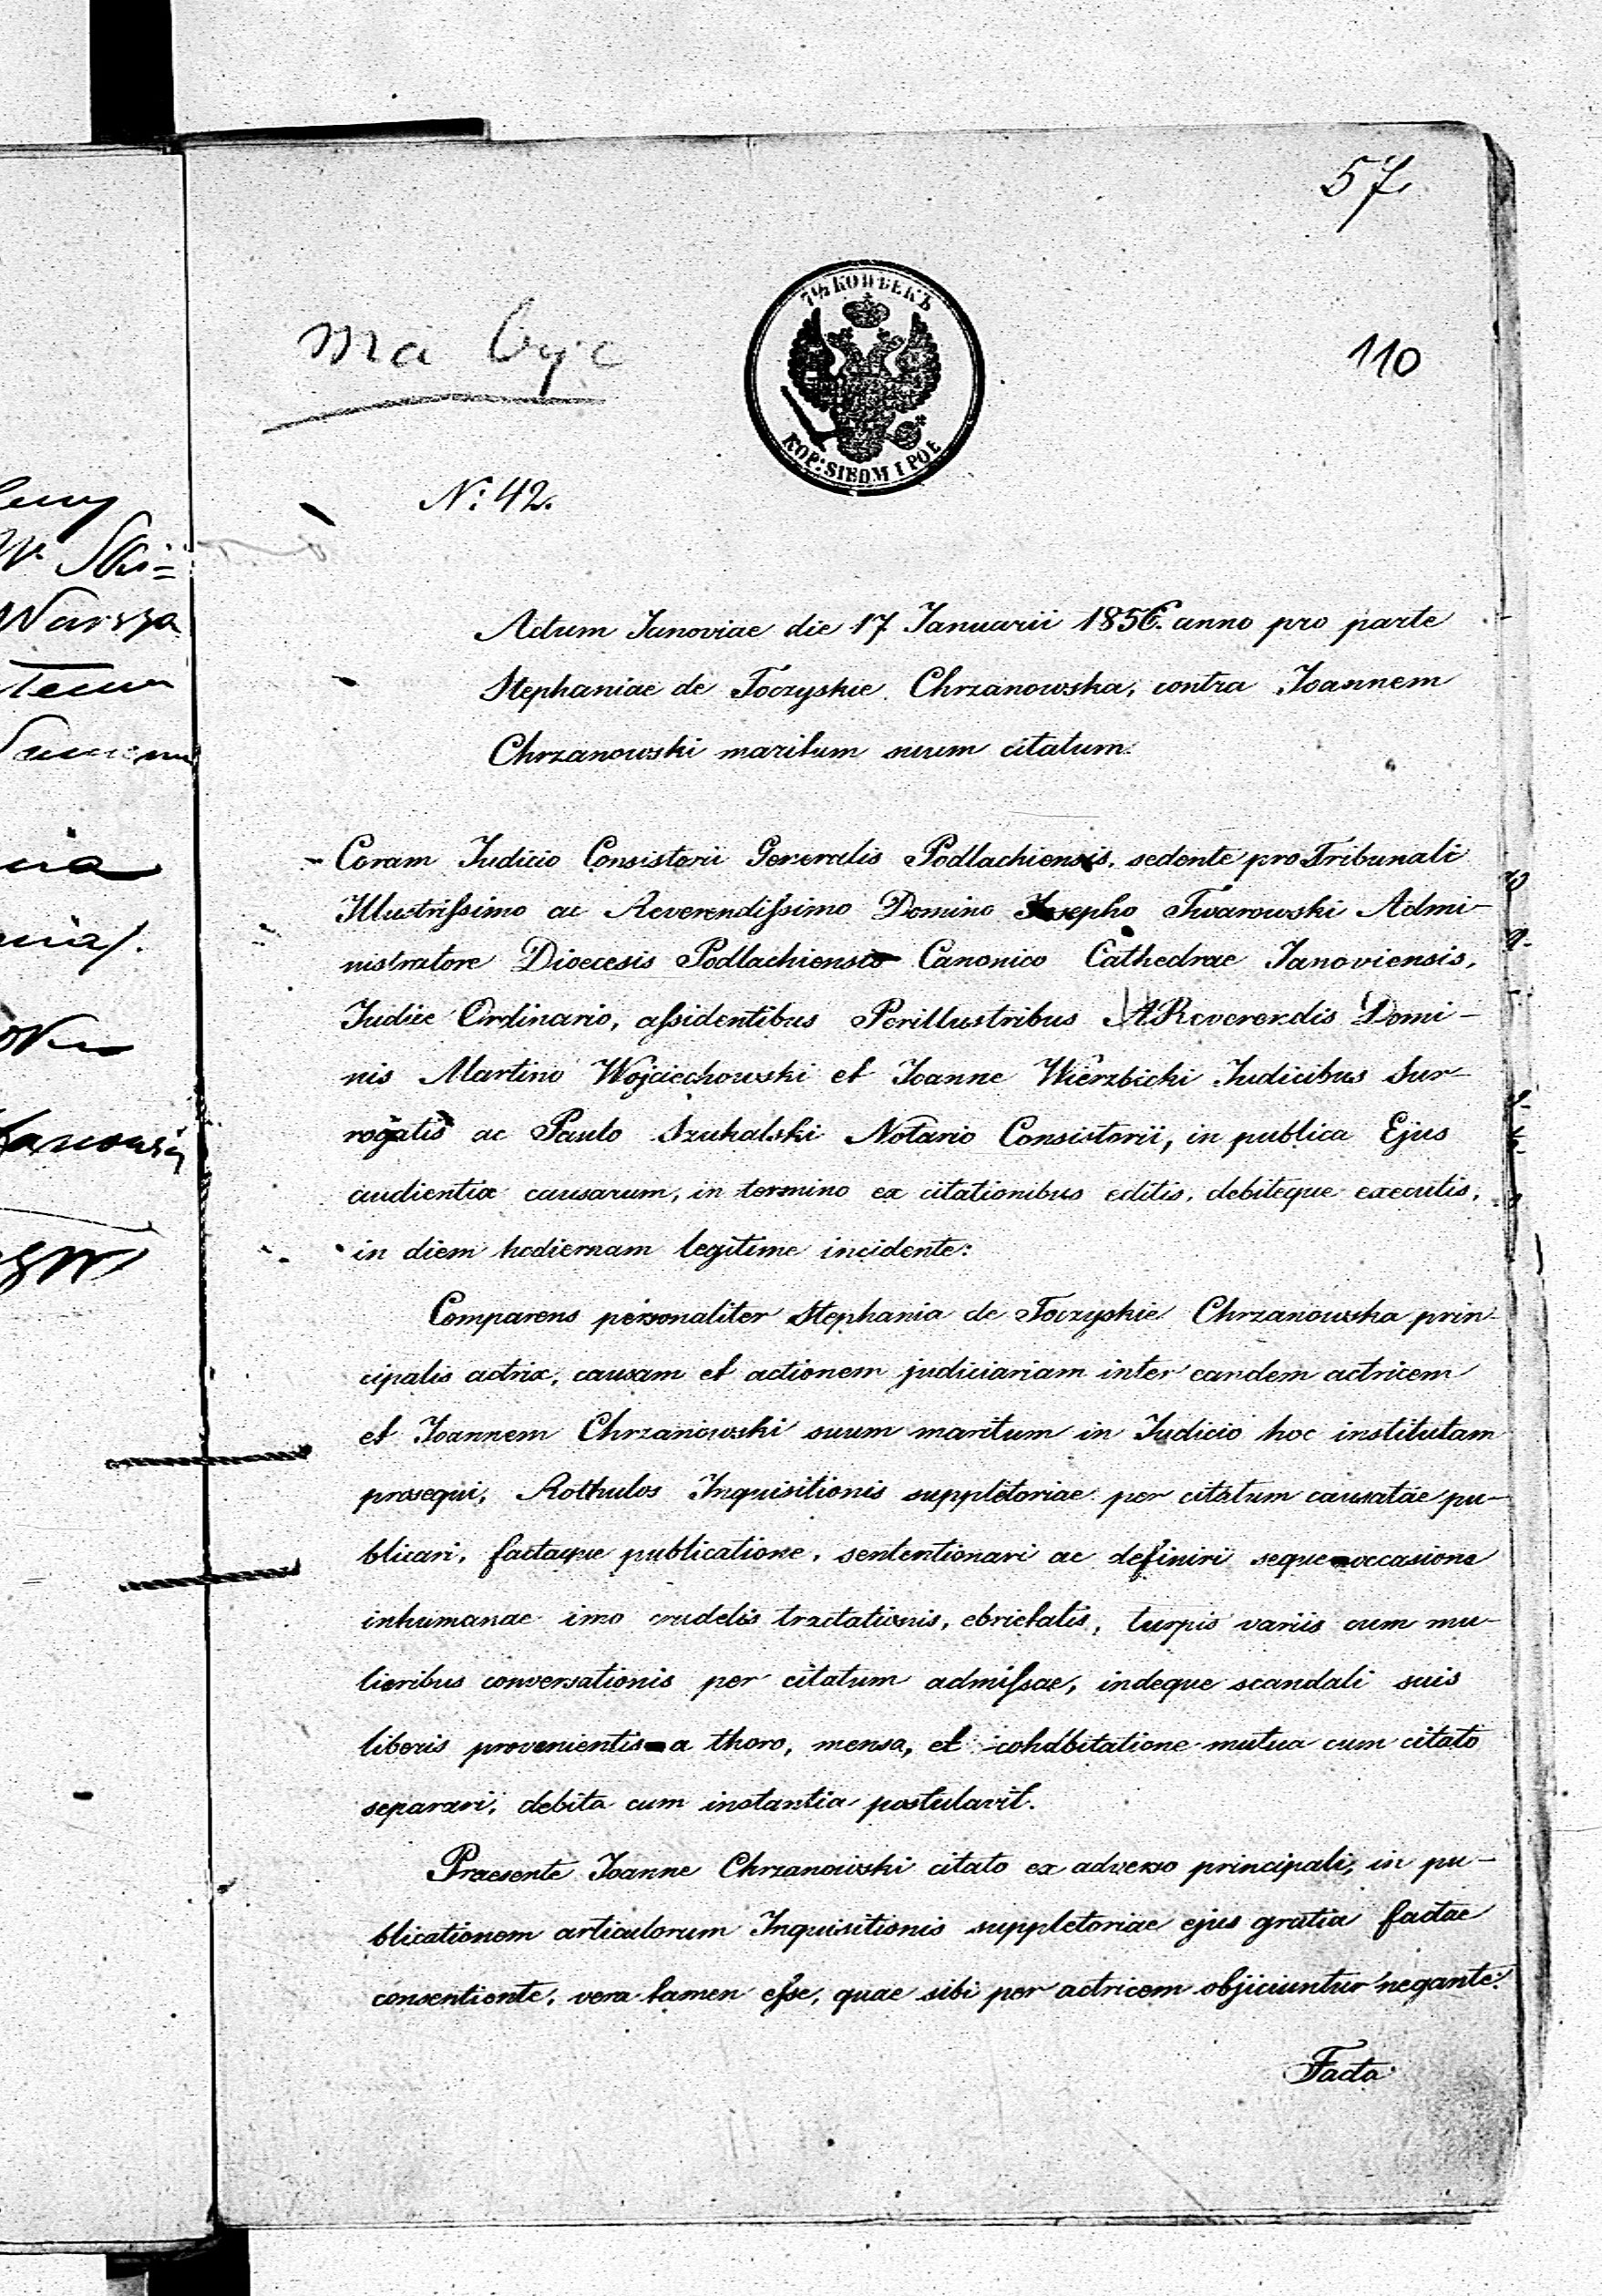 57
ma być
7½ КОПѢЕКЪ
KOP: SIEDM I PÓŁ
110
N: 42.
Actum Janoviae die 17 Januarii 1856. anno pro parte
Stephaniae de Toczyskie Chrzanowska, contra Joannem
Chrzanowski maritum suum citatum.
Coram Judicio Consistorii Generalis Podlachiensis, sedente pro Tribunali
Illustrissimo ac Reverendissimo Domino Josepho Twarowski Admi-
nistratore Dioecesis Podlachiensis Canonico Cathedrae Janoviensis,
Judice Ordinario, assidentibus Perillustribus AReverendis Domi-
nis Martino Wojciechowski et Joanne Wierzbicki Judicibus Sur-
rogatis ac Paulo Szukalski Notario Consistorii, in publica Ejus
audientia causarum, in termino ex citationibus editis, debiteque executis,
in diem hodiernam legitime incidente:
Comparens personaliter Stephania de Toczyskie Chrzanowska prin-
cipalis actrix, causam et actionem judiciariam inter eandem actricem
et Joannem Chrzanowski suum maritum in Judicio hoc institutam
prosequi, Rothulos Inquisitionis suppletoriae per citatum causatae pu-
blicari, factaque publicatione, sententionari ac definiri seque occasione
inhumanae imo crudelis tractationis, ebrietatis, turpis variis cum mu-
lieribus conversationis per citatum admissae, indeque scandali suis
liberis provenientis a thoro, mensa, et cohabitatione mutua cum citato
separari, debita cum instantia postulavit.
Praesente Joanne Chrzanowski citato ex adverso principali, in pu-
blicationem articulorum Inquisitionis suppletoriae ejus gratia factae
consentiente, vera tamen esse, quae sibi per actricem objiciuntur negante.
Facta